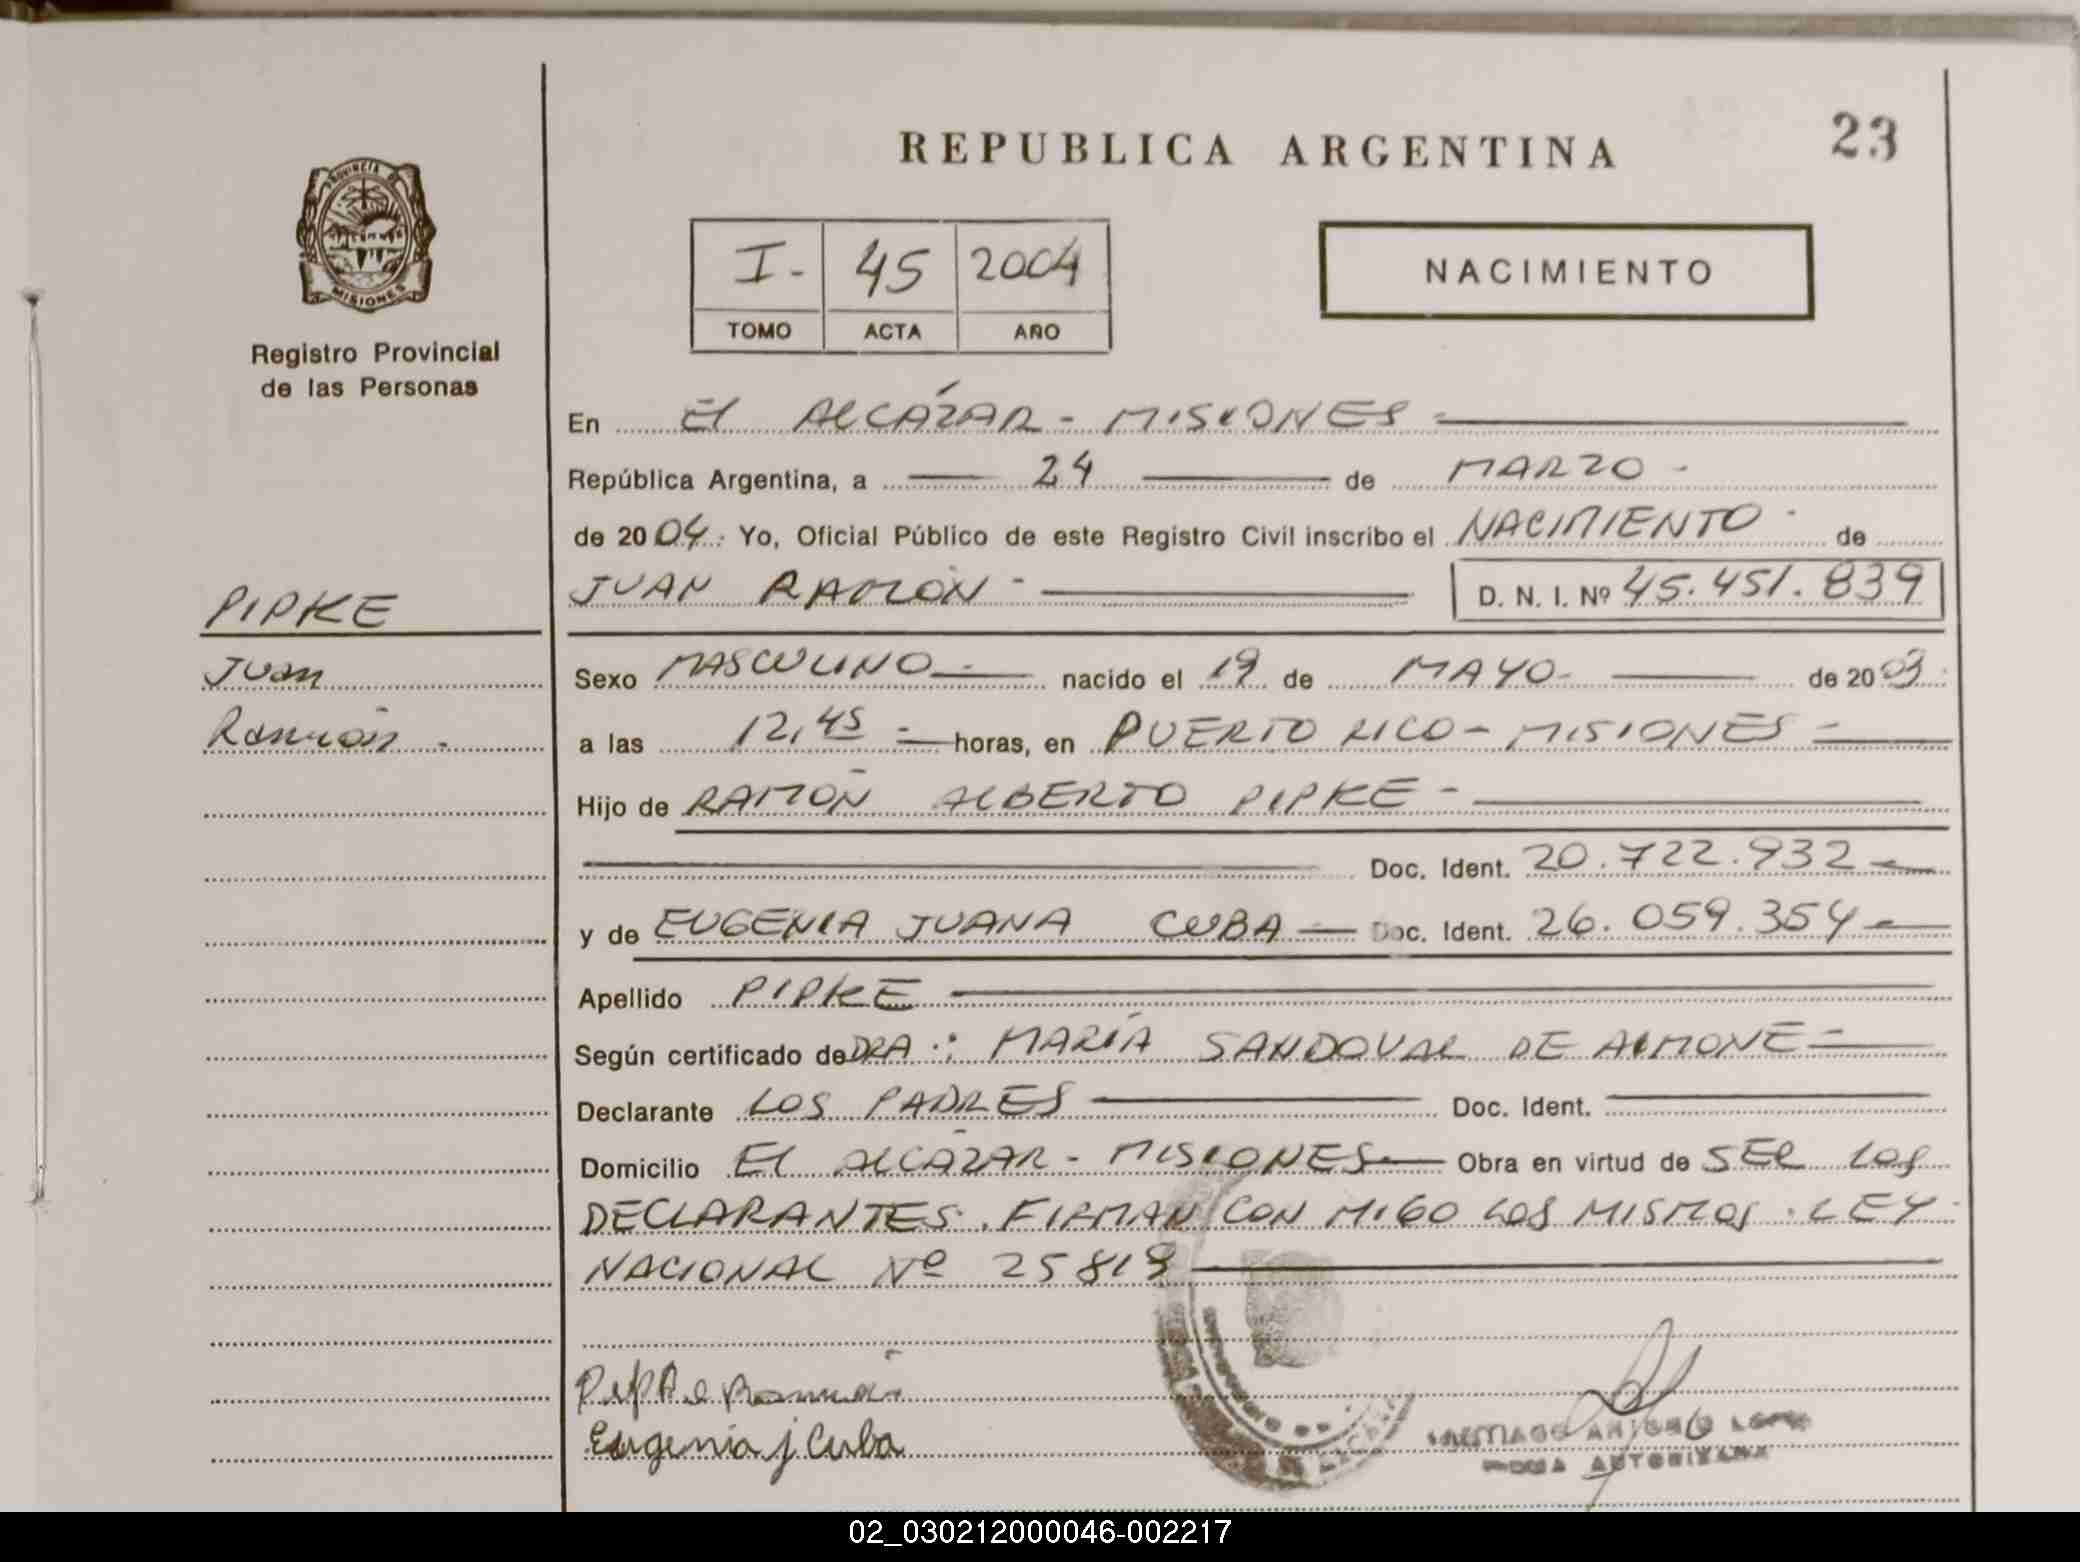 REPUBLICA ARGENTINA
23
PROVINCIA DE
MISIONES
Registro Provincial
de las Personas
I- 45 2004
TOMO ACTA AÑO
NACIMIENTO
En El ALCÁZAR - MISIONES -
República Argentina, a 24 de MARZO -
de 2004. Yo, Oficial Público de este Registro Civil inscribo el NACIMIENTO - de
JUAN RAMÓN - D. N. I. Nº 45.451.839
PIPKE
Juan
Ramón -
Sexo MASCULINO - nacido el 19 de MAYO - de 2003.
a las 12,45 - horas, en PUERTO RICO - MISIONES -
Hijo de RAMÓN ALBERTO PIPKE -
Doc. Ident. 20.722.932 -
y de EUGENIA JUANA CUBA - Doc. Ident. 26.059.354 -
Apellido PIPKE
Según certificado de DRA.: MARÍA SANDOVAL DE AIMONE -
Declarante LOS PADRES Doc. Ident.
Domicilio El ALCÁZAR - MISIONES - Obra en virtud de SER LOS
DECLARANTES. FIRMAN CON MIGO LOS MISMOS. LEY
NACIONAL Nº 25819
Pipke Ramón
Eugenia J Cuba
SANTIAGO ANTONIO LOPEZ
FIRMA AUTORIZADA
02_030212000046-002217